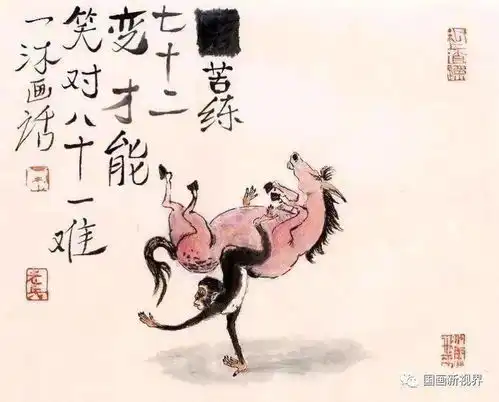 苦练
七十二
变才能
笑对八十一难
一沐画话
国画新视界